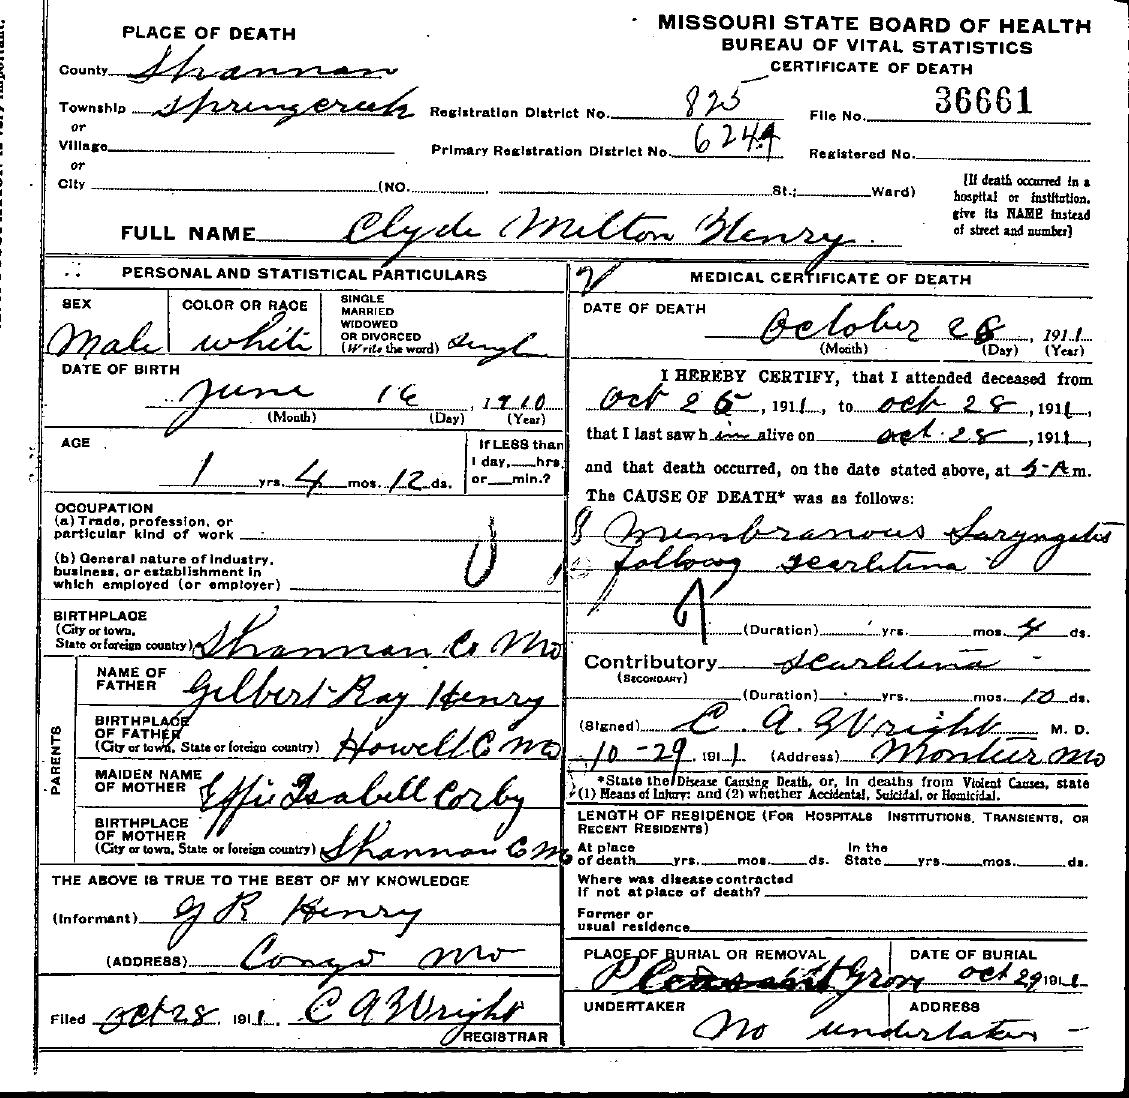 MISSOURI STATE BOARD OF HEALTH
BUREAU OF VITAL STATISTICS
CERTIFICATE OF DEATH
PLACE OF DEATH
County Shannan
Township Springcreek Registration District No. 825 File No. 36661
or
Village Primary Registration District No. 6249 Registered No.
or
City (NO. St.; Ward)
[If death occurred in a
hospital or institution,
give its NAME instead
of street and number]
FULL NAME Clyde Milton Henry
PERSONAL AND STATISTICAL PARTICULARS
SEX
Male
COLOR OR RACE
White
SINGLE
MARRIED
WIDOWED
OR DIVORCED
(Write the word) Single
DATE OF BIRTH
June 16, 1910
(Month) (Day) (Year)
AGE
1 yrs. 4 mos. 12 ds.
If LESS than
1 day, hrs.
or min.?
OCCUPATION
(a) Trade, profession, or
particular kind of work
(b) General nature of industry,
business, or establishment in
which employed (or employer)
BIRTHPLACE
(City or town,
State or foreign country) Shannan Co Mo
PARENTS
NAME OF
FATHER Gilbert Ray Henry
BIRTHPLACE
OF FATHER
(City or town, State or foreign country) Howell C Mo
MAIDEN NAME
OF MOTHER Effie Isabell Corby
BIRTHPLACE
OF MOTHER
(City or town, State or foreign country) Shannan C Mo
THE ABOVE IS TRUE TO THE BEST OF MY KNOWLEDGE
(Informant) G R Henry
(ADDRESS) Congo Mo
Filed Oct 28, 1911, C A Wright
REGISTRAR
MEDICAL CERTIFICATE OF DEATH
DATE OF DEATH
October 28, 1911
(Month) (Day) (Year)
I HEREBY CERTIFY, that I attended deceased from
Oct 25, 1911, to Oct 28, 1911,
that I last saw him alive on Oct. 28, 1911,
and that death occurred, on the date stated above, at 5-A m.
The CAUSE OF DEATH* was as follows:
Membranous Laryngetis
following scarletina
(Duration) yrs. mos. 4 ds.
Contributory Scarletina
(SECONDARY)
(Duration) yrs. mos. 10 ds.
(Signed) C. A. Wright M. D.
10-29, 1911. (Address) Montier Mo
*State the Disease Causing Death, or, in deaths from Violent Causes, state
(1) Means of Injury; and (2) whether Accidental, Suicidal, or Homicidal.
LENGTH OF RESIDENCE (FOR HOSPITALS INSTITUTIONS, TRANSIENTS, OR
RECENT RESIDENTS)
At place In the
of death yrs. mos. ds. State yrs. mos. ds.
Where was disease contracted
if not at place of death?
Former or
usual residence
PLACE OF BURIAL OR REMOVAL
Pleasant Grove
DATE OF BURIAL
Oct 29 1911
UNDERTAKER ADDRESS
No undertaker